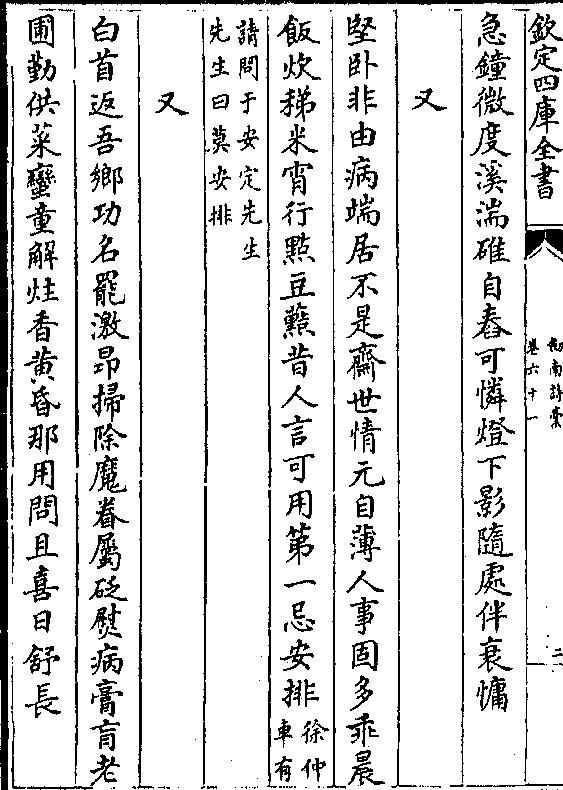 欽定四庫全書
劍南詩稾
卷六十一
二
急鐘微度溪湍碓自舂可憐燈下影隨處伴衰慵
又
堅卧非由病端居不是齋世情元自薄人事固多乖晨
飯炊稊米宵行㸃豆䕸昔人言可用第一忌安排徐仲
車有
請問于安定先生
先生曰莫安排
又
白首返吾鄉功名罷激昂掃除魔眷屬砭熨病膏肓老
圃勤供菜蠻童解炷香黄昏那用問且喜日舒長